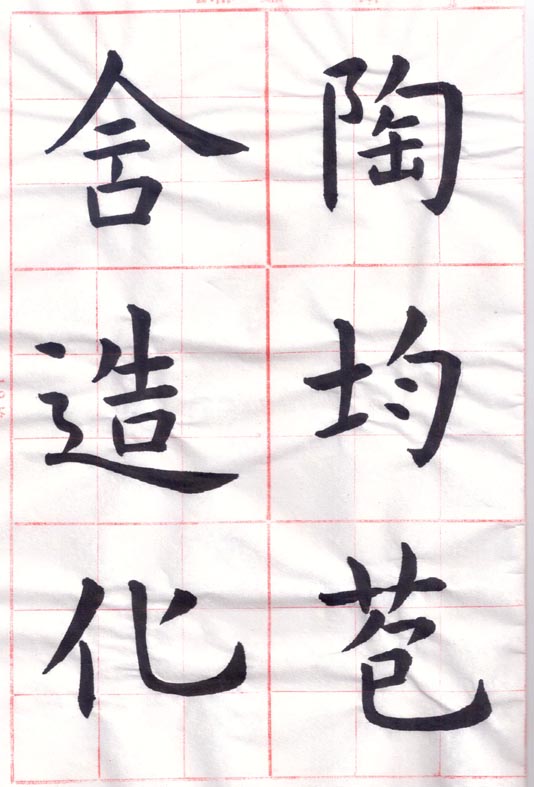 陶均苞
含造化